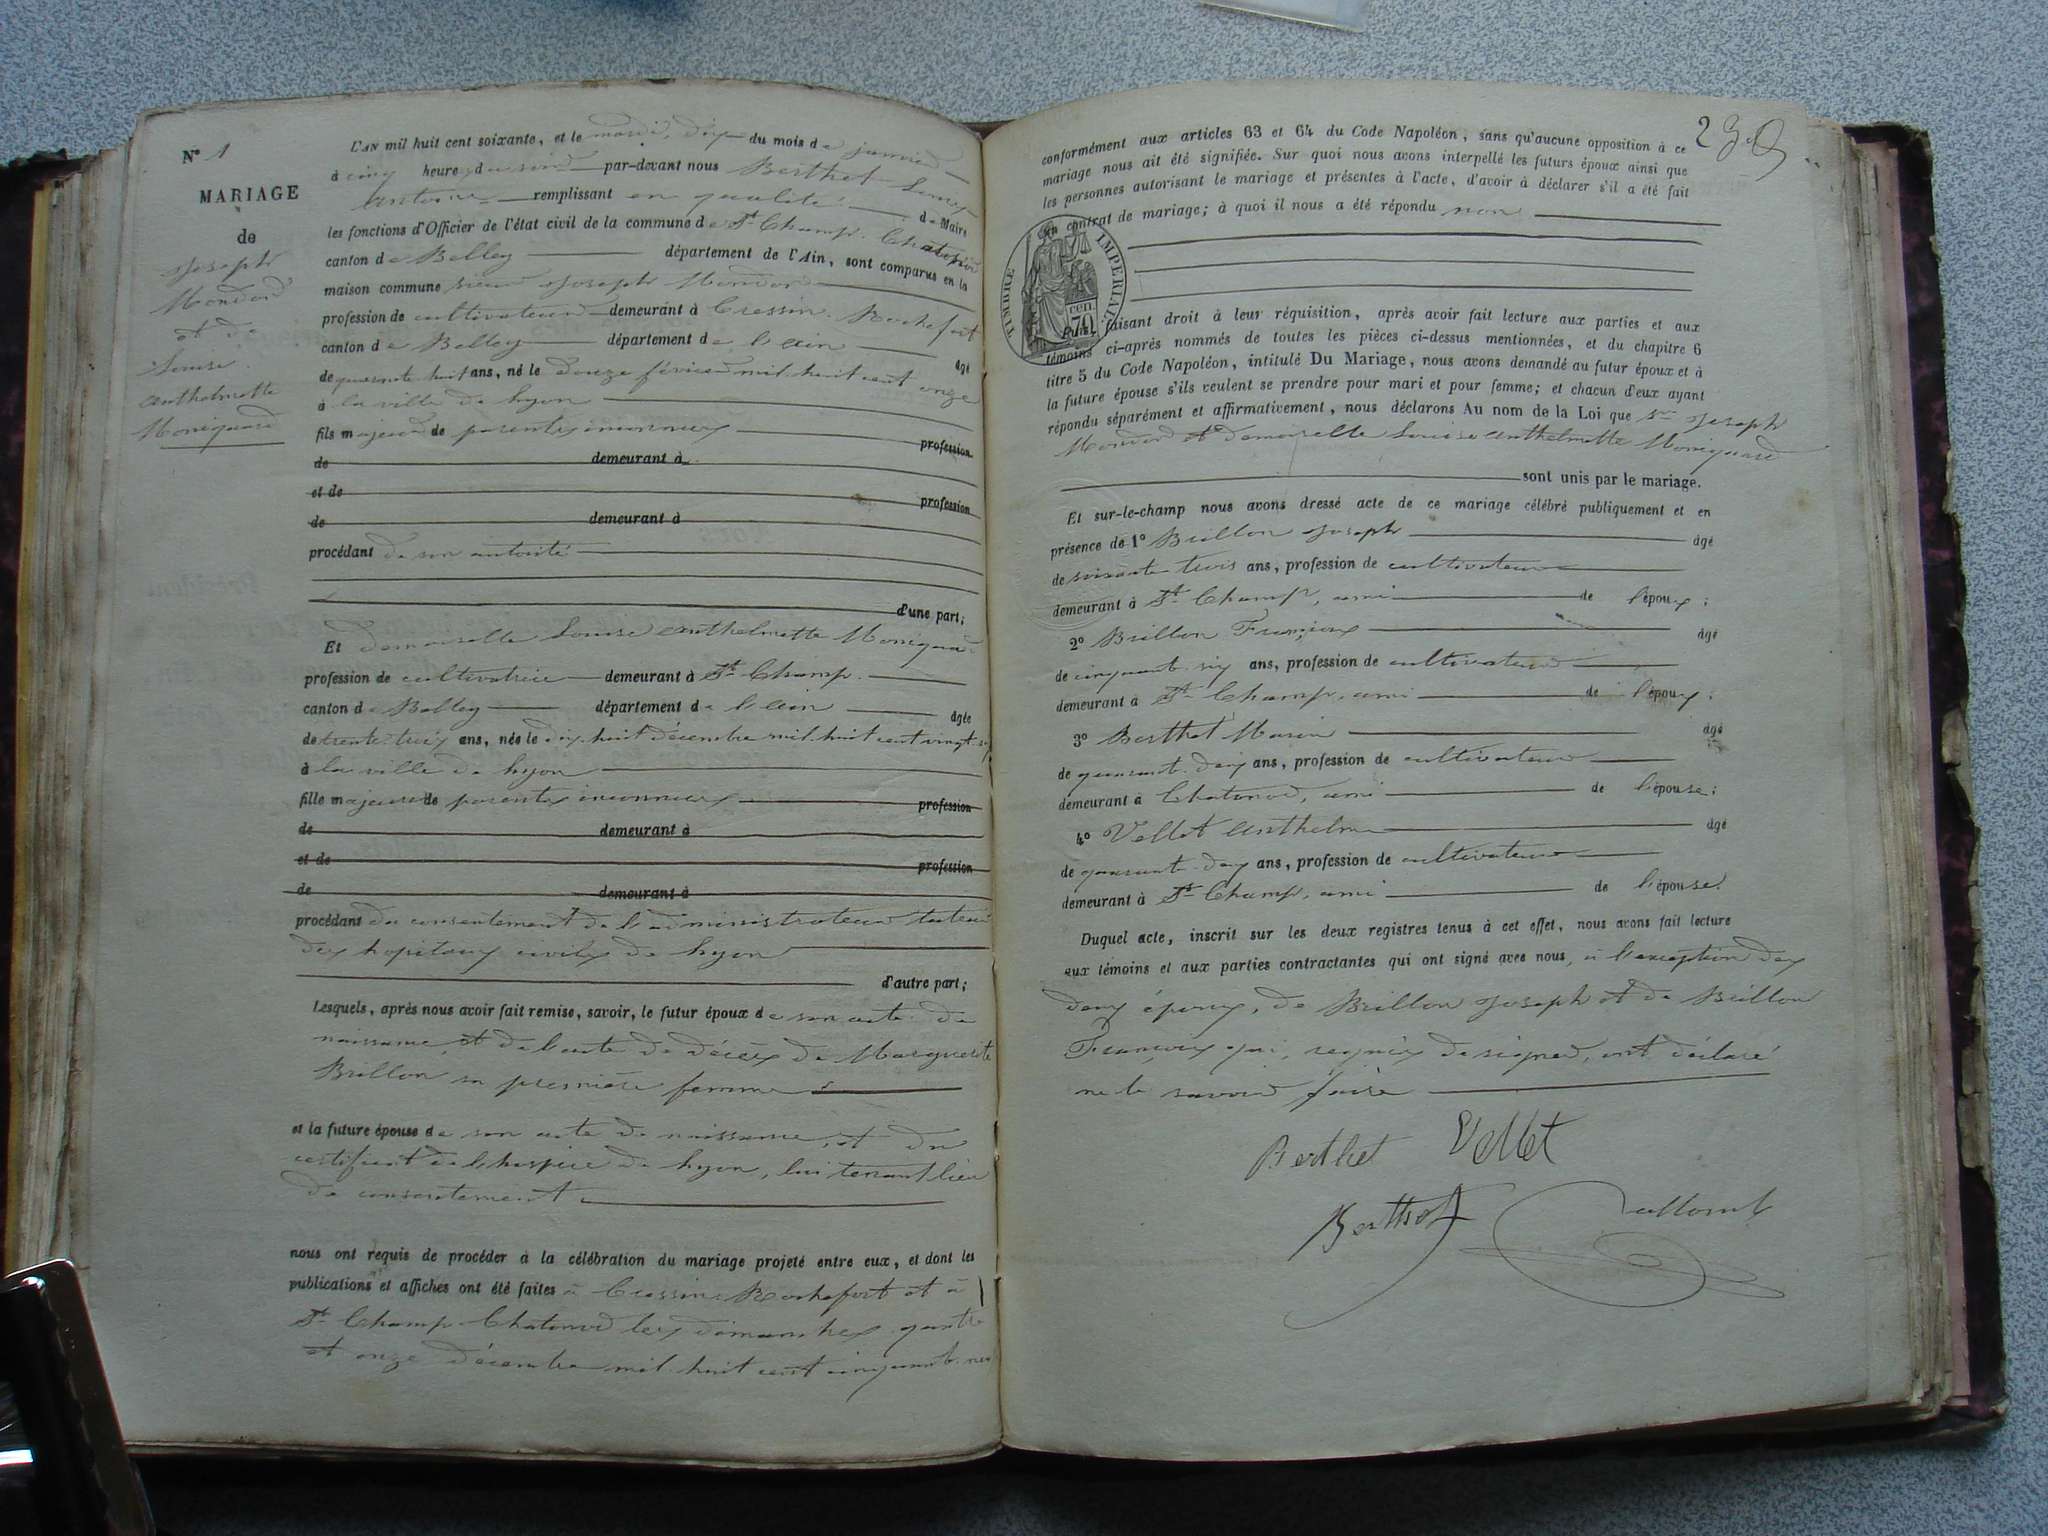 N° 1
MARIAGE
de
Joseph
Mondon
et de
Louise
Anthelmette
Moniquard
L'AN mil huit cent soixante, et le mardi, dix du mois de janvier
à cinq heures du soir par-devant nous Berthet Louis
Antoine remplissant en qualité de Maire
les fonctions d'Officier de l'état civil de la commune de St Champ-Chatonod
canton de Belley département de l'Ain, sont comparus en la
maison commune sieur Joseph Mondon
profession de cultivateur demeurant à Cressin-Rochefort
canton de Belley département de l'ain âgé
de quarante-huit ans, né le douze février mil-huit cent onze
à la ville de Lyon
fils majeur de parents inconnus profession
de demeurant à
et de profession
de demeurant à
procédant de son autorité
d'une part;
Et demoiselle Louise Anthelmette Moniquard
profession de cultivatrice demeurant à St Champ.
canton de Belley département de l'ain âgée
de trente-trois ans, née le dix-huit décembre mil-huit cent vingt-six
à la ville de Lyon
fille majeure de parents inconnus profession
de demeurant à
et de profession
de demeurant à
procédant du consentement de l'administrateur tuteur
des hopitaux civils de Lyon
d'autre part;
Lesquels, après nous avoir fait remise, savoir, le futur époux de son acte de
naissance, et de l'acte de décès de Marguerite
Brillon sa première femme
et la future épouse de son acte de naissance, et du
certificat de l'hospice de Lyon, lui tenant lieu
de consentement
nous ont requis de procéder à la célébration du mariage projeté entre eux, et dont les
publications et affiches ont été faites à Cressin-Rochefort et à
St Champ-Chatonod les dimanches quatre
et onze décembre mil-huit cent cinquante-neuf
conformément aux articles 63 et 64 du Code Napoléon, sans qu'aucune opposition à ce
mariage nous ait été signifiée. Sur quoi nous avons interpellé les futurs époux ainsi que
les personnes autorisant le mariage et présentes à l'acte, d'avoir à déclarer s'il a été fait
un contrat de mariage; à quoi il nous a été répondu non
TIMBRE IMPERIAL
70 cen.
Puis, faisant droit à leur réquisition, après avoir fait lecture aux parties et aux
témoins ci-après nommés de toutes les pièces ci-dessus mentionnées, et du chapitre 6
titre 5 du Code Napoléon, intitulé Du Mariage, nous avons demandé au futur époux et à
la future épouse s'ils veulent se prendre pour mari et pour femme; et chacun d'eux ayant
répondu séparément et affirmativement, nous déclarons Au nom de la Loi que Sr Joseph
Mondon et demoiselle Louise Anthelmette Moniquard
sont unis par le mariage.
Et sur-le-champ nous avons dressé acte de ce mariage célébré publiquement et en
présence de 1° Brillon Joseph âgé
de soixante-trois ans, profession de cultivateur
demeurant à St Champ, ami de l'époux;
2° Brillon François âgé
de cinquante-six ans, profession de cultivateur
demeurant à St Champ, ami de l'époux;
3° Berthet Marin âgé
de quarante-deux ans, profession de cultivateur
demeurant à Chatonod, ami de l'épouse;
4° Vellet Anthelme âgé
de quarante-deux ans, profession de cultivateur
demeurant à St Champ, ami de l'épouse.
Duquel acte, inscrit sur les deux registres tenus à cet effet, nous avons fait lecture
aux témoins et aux parties contractantes qui ont signé avec nous, à l'exception des
deux époux, de Brillon Joseph et de Brillon
François qui, requis de signer, ont déclaré
ne le savoir faire
Berthet Vellet
Berthet